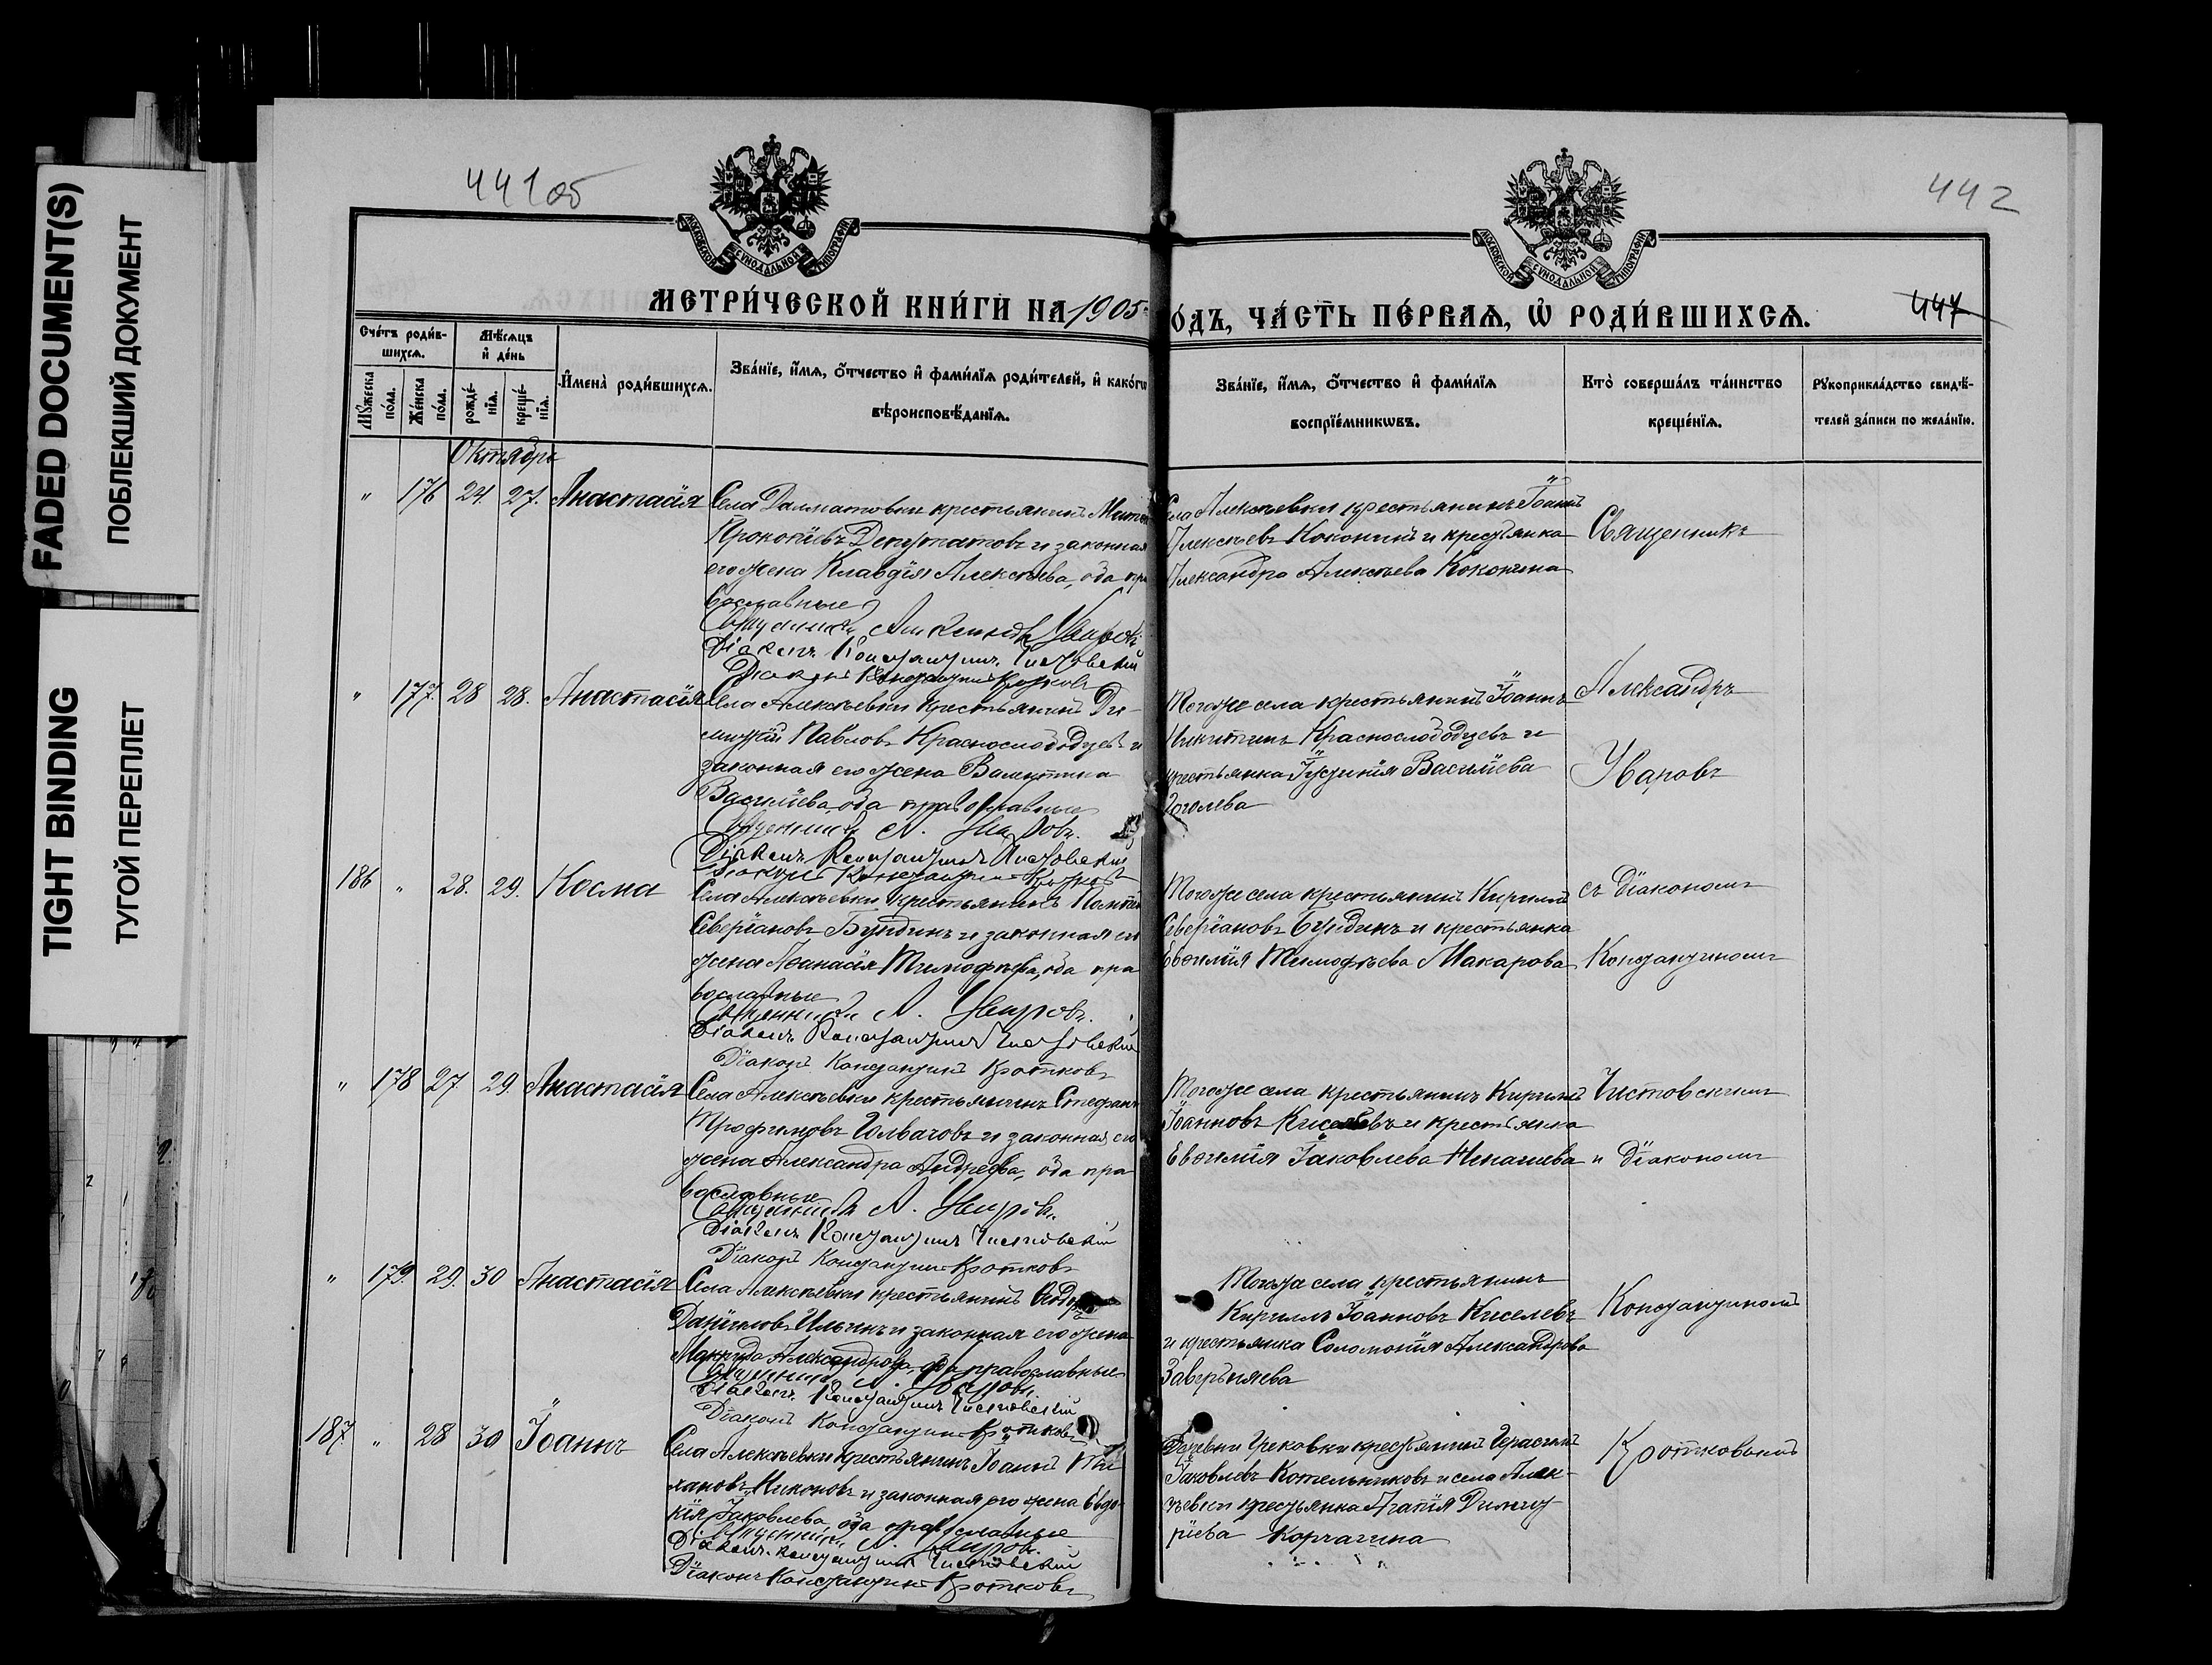 FADED DOCUMENT(S)
ПОБЛЕКШИЙ ДОКУМЕНТ
TIGHT BINDING
ТУГОЙ ПЕРЕПЛЕТ
441об
442
447
МОСКОВСКОЙ СѴНОДАЛЬНОЙ ТИПОГРАФІИ
МОСКОВСКОЙ СѴНОДАЛЬНОЙ ТИПОГРАФІИ
МЕТРИ́ЧЕСКОЙ КНИ́ГИ НА 1905
О́ДЪ, ЧА́СТЬ ПЕ́РВАЯ, Ѡ РОДИ́ВШИХСЯ.
Сче́тъ роди́в-
шихся.
Мѣ́сяцъ
и де́нь
Мꙋ́жеска
по́ла.
Же́нска
по́ла.
рожде́-
нїя.
креще́-
нїя.
Имена̀ роди́вшихся.
Зва́нїе, и́мя, о́тчество и фами́лїя роди́телей, и како́гѡ
вѣроисповѣ́данїя.
Зва́нїе, и́мя, о́тчество и фами́лїя
воспрїе́мникѡвъ.
Кто̀ соверша́лъ та́инство
креще́нїя.
Рꙋкоприкла́дство свидѣ́-
телей за́писи по жела́нїю.
Октябрь
" 176 24. 27. Анастасія
Села Далматовки крестьянинъ
Прокопіевъ Депутатовъ и законная
его жена Клавдія Алексѣева, оба пра
вославные
Священникъ Александръ Уваровъ
Діаконъ Константинъ Чистовскій
Діаконъ Константинъ Кротковъ
Села Алексѣевки крестьянинъ Іоаннъ
Алексѣевъ Коконинъ и крестьянка
Александра Алексѣева Коконина
Священникъ
" 177. 28 28. Анастасія
Села Алексѣевки крестьянинъ Ди-
митрій Павловъ Краснослободцевъ и
законная его жена Валентина
Васильева, оба православные
Священникъ А. Уваровъ.
Діаконъ Константинъ Чистовскій
Діаконъ Константинъ Кротковъ
Тогоже села крестьянинъ Іоаннъ
Никитинъ Краснослободцевъ и
крестьянка Іустинія Васильева
Гоголева
Александръ
Уваровъ
186 " 28. 29. Косма
Села Алексѣевки крестьянинъ
Северіановъ Бундинъ и законная его
жена Аѳанасія Тимофѣева, оба пра
вославные
Священникъ А. Уваровъ.
Діаконъ Константинъ Чистовскій
Діаконъ Константинъ Кротковъ
Тогоже села крестьянинъ Кириллъ
Северіановъ Бундинъ и крестьянка
Евѳимія Тимофѣева Макарова
съ Діакономъ
Константиномъ
" 178 27 29. Анастасія
Села Алексѣевки крестьянинъ Стефанъ
Трофимовъ Голвачовъ и законная его
жена Александра Андреева, оба пра
вославные
Священникъ А. Уваровъ.
Діаконъ Константинъ Чистовскій
Діаконъ Константинъ Кротковъ
Тогоже села крестьянинъ Кириллъ
Іоанновъ Киселевъ и крестьянка
Евѳимія Іаковлева Ненашева
Чистовскимъ
и Діакономъ
" 179. 29. 30 Анастасія
Села Алексѣевки крестьянинъ
Даніиловъ Ильинъ и законная его жена
Макрида Александрова, оба православные
Священникъ А. Уваровъ.
Діаконъ Константинъ Чистовскій
Діаконъ Константинъ Кротковъ
Тогоже села крестьянинъ
Кириллъ Іоанновъ Киселевъ
и крестьянка Соломонія Александрова
Завершяева
Константиномъ
187. " 28 30 Іоаннъ
Села Алексѣевки крестьянинъ Іоаннъ
Никоновъ и законная его жена Евдо-
кія Іаковлева, оба православные
Священникъ А. Уваровъ.
Діаконъ Константинъ Чистовскій
Діаконъ Константинъ Кротковъ
Деревни Грековки крестьянинъ Герасимъ
Іаковлевъ Котельниковъ и села Алек-
сѣевки крестьянка Агапія Димит-
ріева Корчагина
Кротковымъ